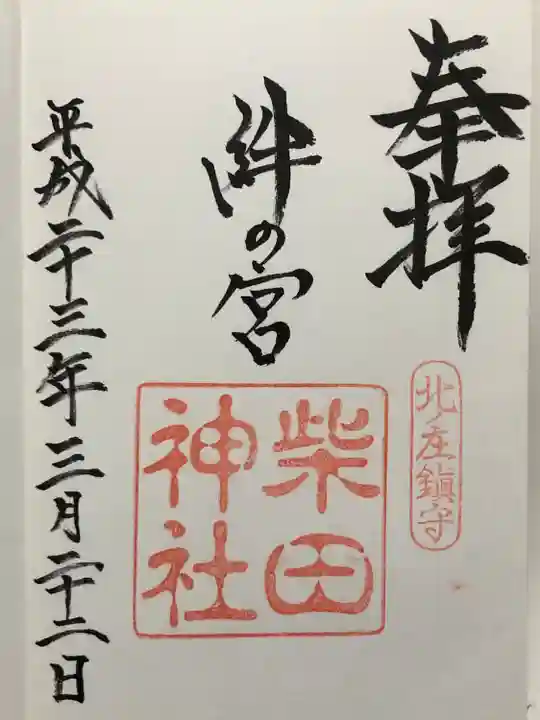 奉拝
北庄鎮守
絆の宮
柴田
神社
平成二十三年三月二十二日